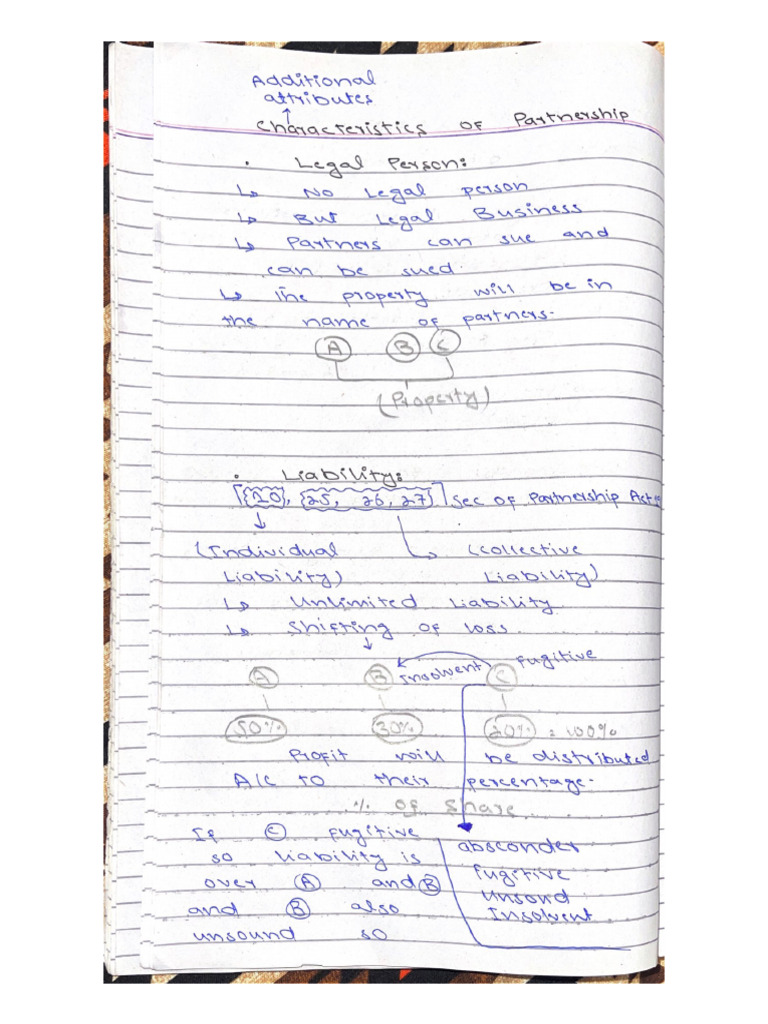 Additional
attributes
↑
Characteristics of Partnership
• Legal Person:
↳ No legal person
↳ But legal Business
↳ Partners can sue and
can be sued.
↳ The property will be in
the name of partners.
A B C
(Property)
• Liability:
[{10}, {25, 26, 27}] Sec of Partnership Act
(Individual (collective
Liability) Liability)
↳ Unlimited Liability
↳ Shifting of loss.
A B Insolvent C fugitive
50% 30% 20% = 100%
Profit will be distributed
A/C to their percentage.
% of share
If C fugitive absconder
so liability is fugitive
over A and B Unsond
and B also Insolvent
unsound so